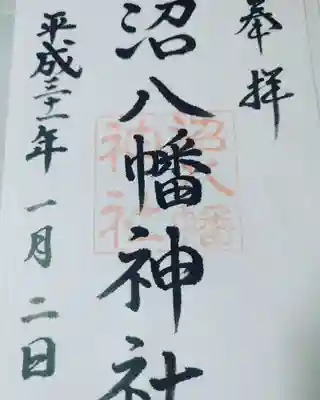 奉拝
沼八幡神社
沼八幡
神社
平成三十一年一月二日